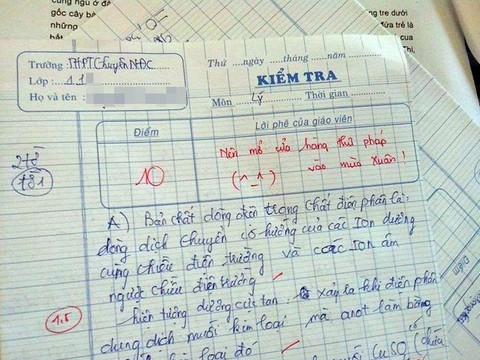 cùng ngu ở đ
gốc cây bà
những
ng tre dưới
đứa trẻ là
Thi,
Trường: THPT Chuyên NĐC
Lớp: 11
Họ và tên:
Thứ ...ngày ......tháng ......năm
KIỂM TRA
Môn Lý Thời gian
Điểm
Lời phê của giáo viên
10
Nên mở cửa hàng thư pháp
(^_^) vào mùa Xuân!
181
A) Bản chất dòng điện trong chất điện phân là:
dòng dịch chuyển có hướng của các Ion dương
cùng chiều điện trường và các Ion âm
ngược chiều điện trường
- hiện tượng dương cực tan: xảy ra khi điện phân
1.5
dung dịch muối kim loại mà anot làm bằng
kim loại đó
muối CuSO4